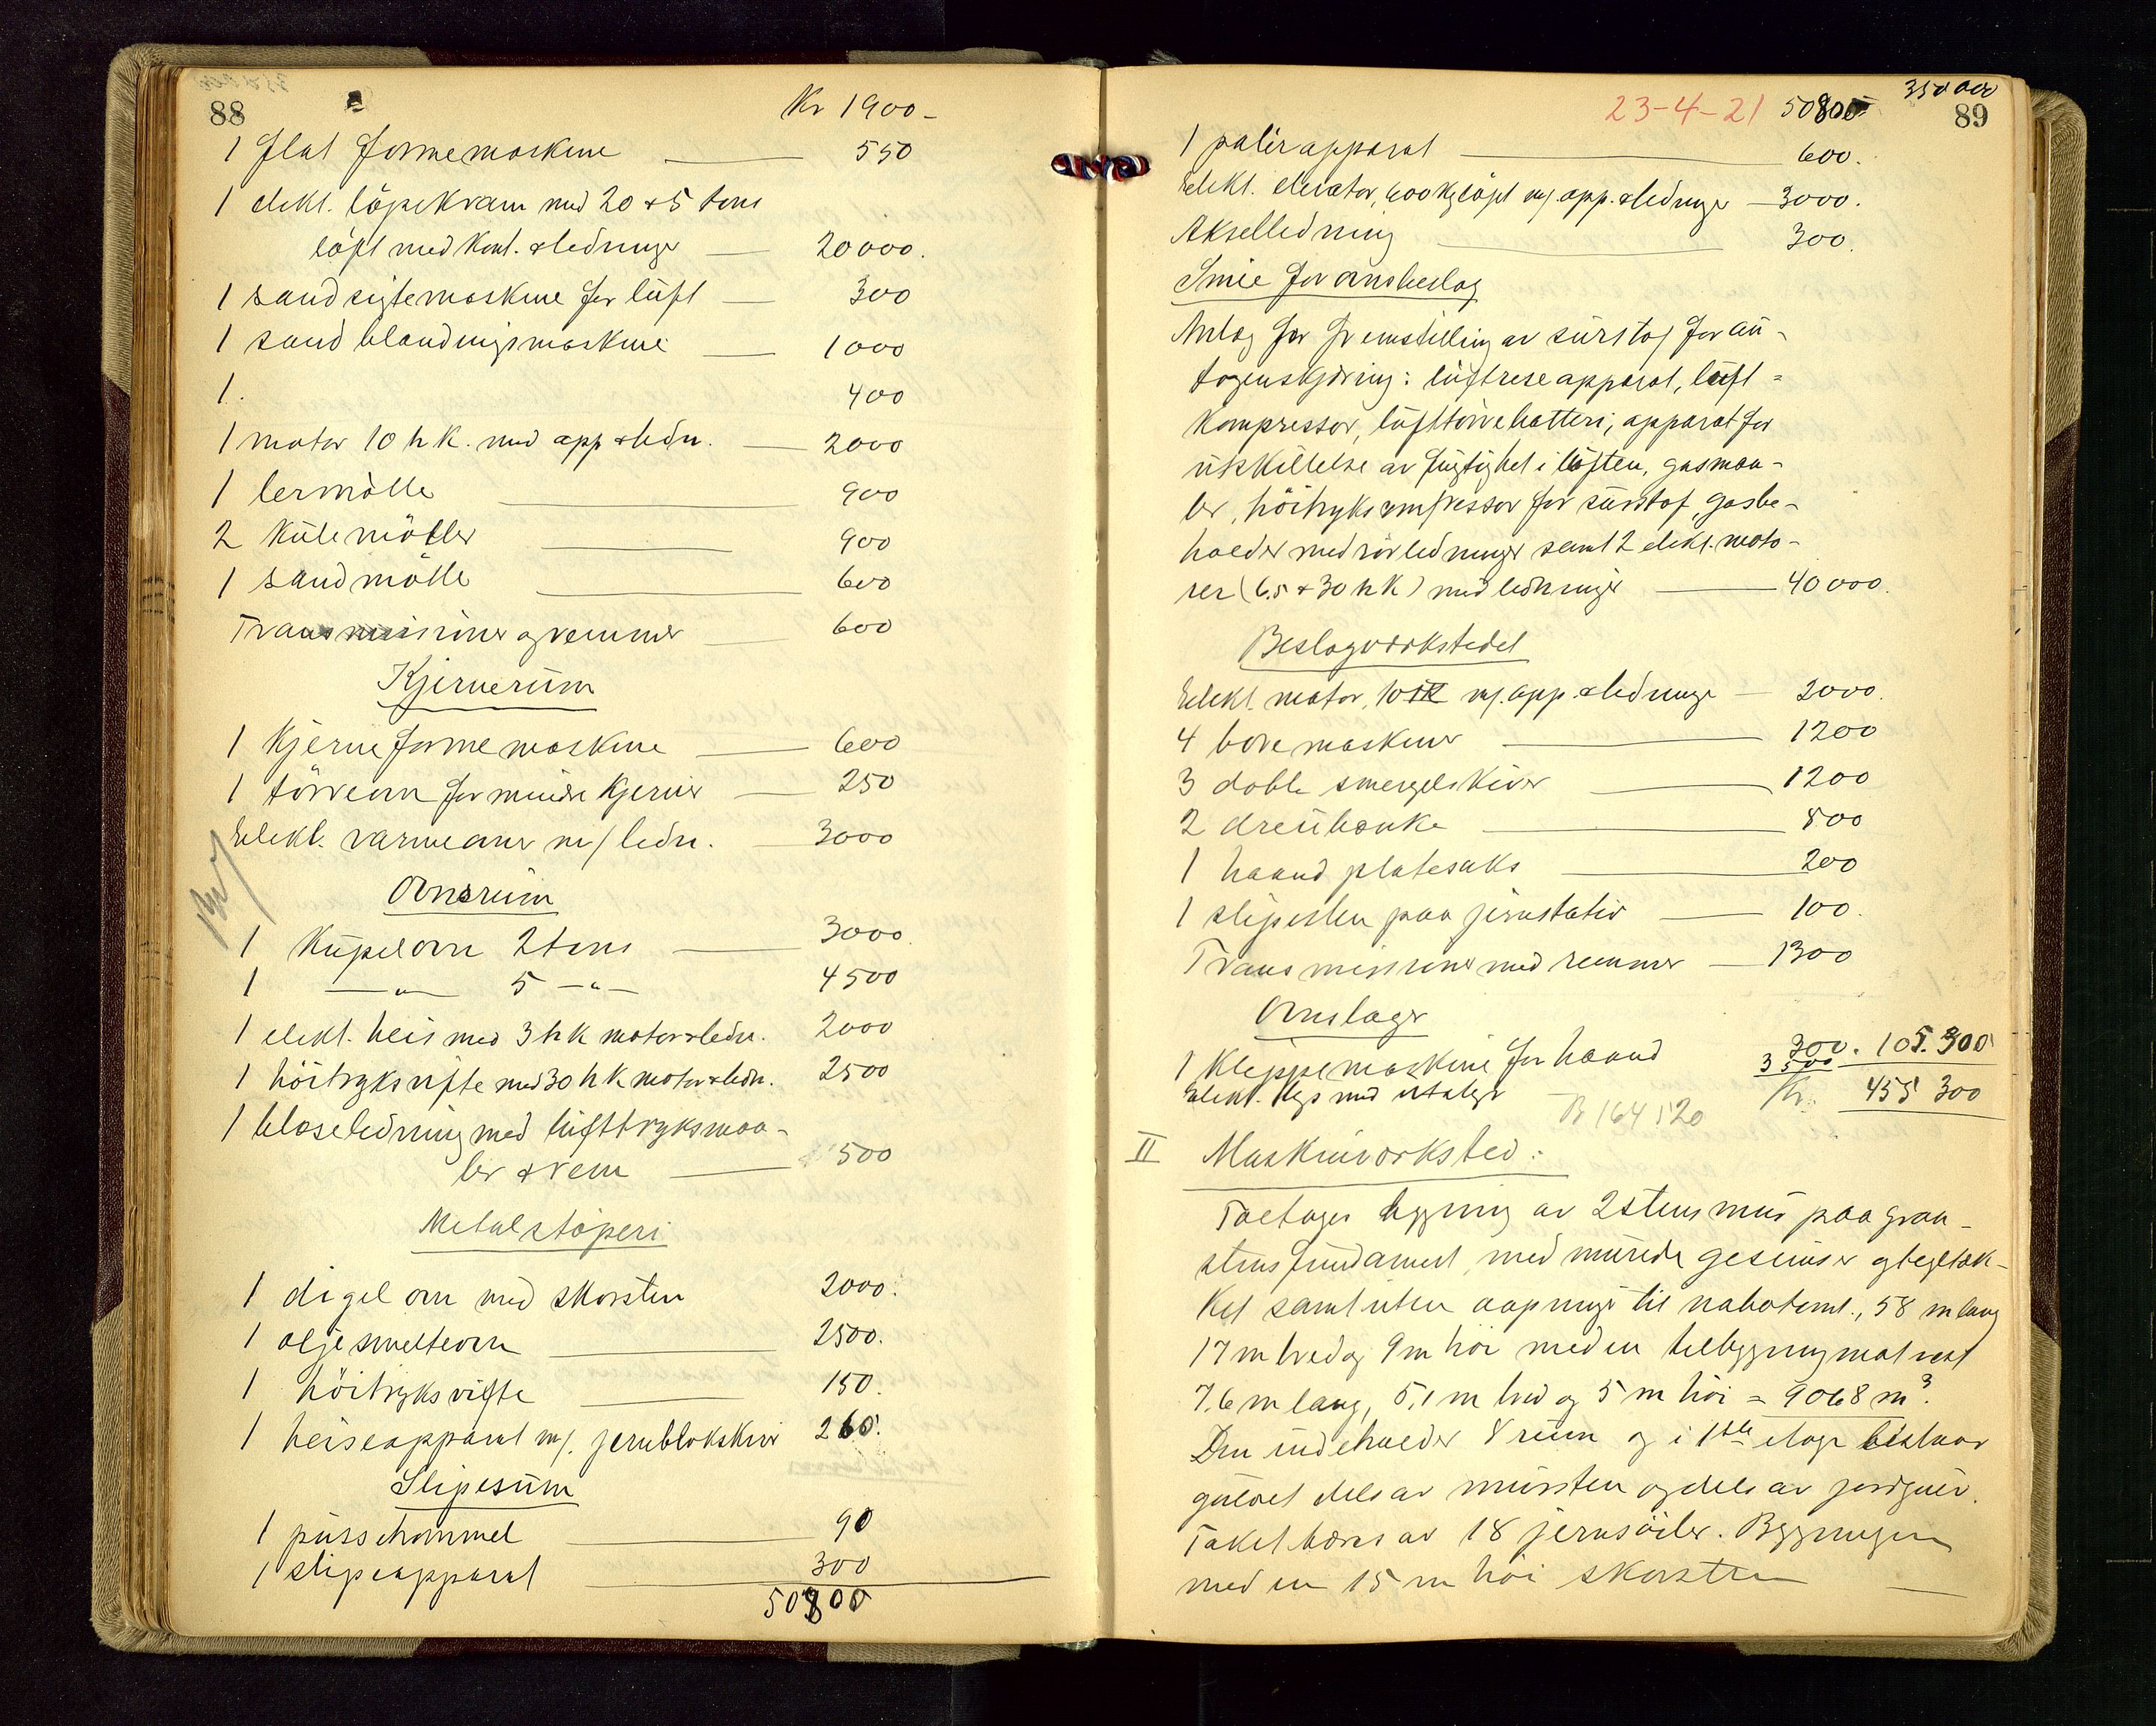 88
Kr 1900-
1 flat formemaskine 550
1 elekt. löpekran med 20 & 5 tons
löft med kont. & ledninger 20000.
1 sandsigtemaskine for lüft 300
1 sandblandingsmaskine 1000
1. 400
1 motor 10 h k. med app & ledn. 2000
1 lermölle 900
2 külemöller 900
1 sandmölle 600
Transmissioner og remmer 600
Kjernerüm
1 kjerneformemaskine 600
1 törreovn for mindre kjerner 250
Elekt. varmeovn m/ ledn. 3000
Ovnsrüm
1 Küpelovn 2 tons 3000
1 —"— 5 —"— 4500
1 elekt. heis med 3 h k motor & ledn. 2000
1 höitryksvifte med 30 h k motor & ledn. 2500
1 blaseledning med lüfttryksmaa-
ler & rem 500
Metalstöperi
1 digelovn med skorsten 2000.
1 oljesmelteovn 2500.
1 höitryksvifte 150.
1 heiseapparat m/. jernblokskiver 260.
Sliperüm
1 püssetrommel 90
1 slipeapparat 300
50800
350 000
23-4-21 50800
89
1 polérapparat 600.
Elekt. elevator, 600 kg löft m/. app. & ledninger 3000.
Akselledning 300.
Smie for ovnsbeslag
Anlæg for fremstilling av sürstof for aü-
togenskjæring: lüftrenseapparat, lüft=
kompressor, lüfttörrebatteri, apparat for
ütskillelse av fügtighet i lüften, gasmaa-
ler, höitrykskompressor for sürstof, gasbe-
holder med rörledninger samt 2 elekt. moto-
rer (6.5 & 30 h k) med ledninger 40 000.
Beslagverkstedet
Elekt. motor, 10 HK m/. app. & ledninger 2000.
4 boremaskiner 1200
3 doble smergelskiver 1200
2 dreiebænke 800
1 haand platesaks 200
1 slipesten paa jernstativ 100.
Transmissioner med remmer 1300
Ovnslager
1 Klippemaskine for haand 300. 105.300
Elekt. lys med uttak 3500 Kr. 455 300
B 164520
II Maskinverksted:
Toetages bygning av 2 stens mür paa graa-
stens fündament, med mürede gesimser og tegltæk-
ket samt üten aapninger til nabotomt., 58 m lang
17 m bred og 9 m höi med en tilbygning mot vest
7.6 m lang, 5,1 m bred og 5 m höi = 9068 m³.
Den indeholder 8 rüm og i 1ste etage bestaar
gülvet dels av mürsten og dels av jordgülv.
Taket bæres av 18 jernsöiler. Bygningen
med en 15 m höi skorsten